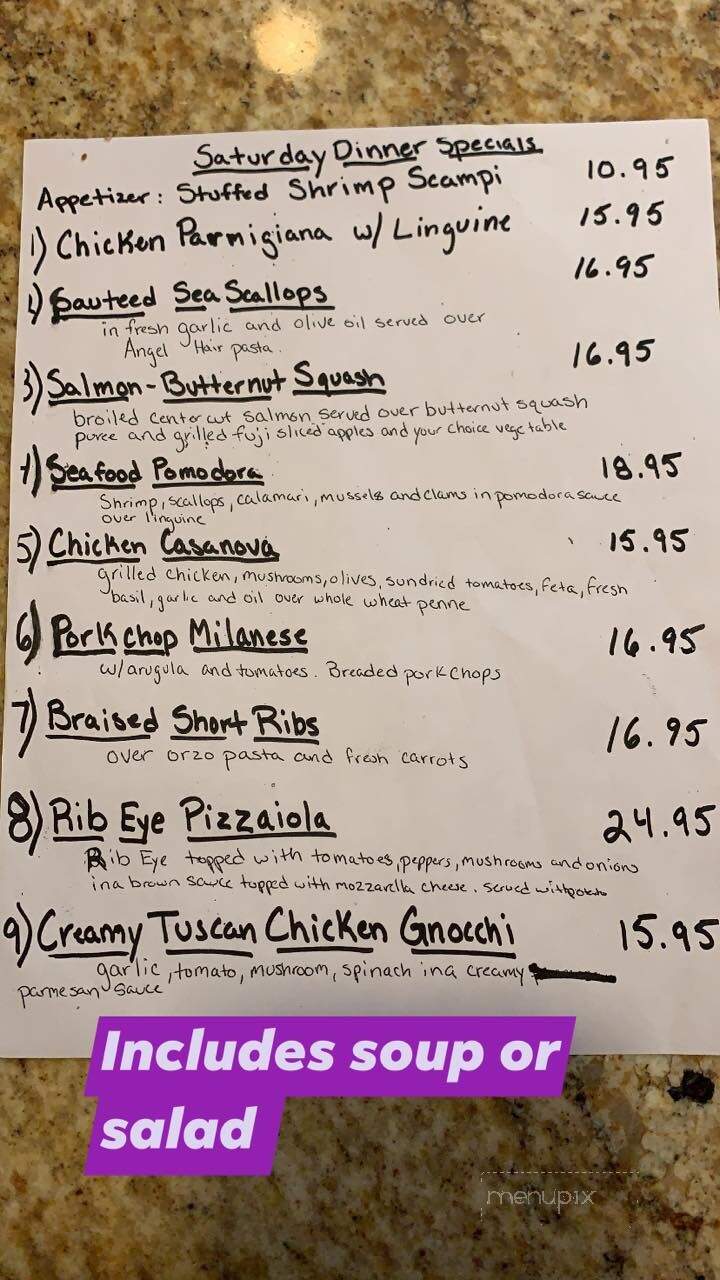 Saturday Dinner Specials
Appetizer: Stuffed Shrimp Scampi 10.95
1) Chicken Parmigiana w/ Linguine 15.95
Sauteed Sea Scallops 16.95
in fresh garlic and olive oil served over
Angel Hair pasta.
3) Salmon-Butternut Squash 16.95
broiled center cut salmon served over butternut squash
puree and grilled fuji sliced apples and your choice vegetable
4) Seafood Pomodora 18.95
Shrimp, scallops, calamari, mussels and clams in pomodora sauce
over linguine
5) Chicken Casanova 15.95
grilled chicken, mushrooms, olives, sundried tomatoes, feta, fresh
basil, garlic and oil over whole wheat penne
6) Pork chop Milanese 16.95
w/arugula and tomatoes. Breaded pork chops
7) Braised Short Ribs 16.95
over orzo pasta and fresh carrots
8) Rib Eye Pizzaiola 24.95
Rib Eye topped with tomatoes, peppers, mushrooms and onions
in a brown sauce topped with mozzarella cheese. Served with potato
9) Creamy Tuscan Chicken Gnocchi 15.95
garlic, tomato, mushroom, spinach in a creamy
parmesan sauce
Includes soup or
salad
menupix